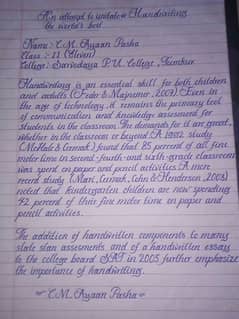 An attempt to update Handwriting
the world's best
Name :- C.M. Ayaan Pasha
Class :- 11 (Eleven)
College : Sarvodaya P.U. College, Tumkur
Handwriting is an essential skill for both children
and adults (Feder & Majnemer, 2007). Even in
the age of technology, it remains the primary tool
of communication and knowledge assesment for
students in the classroom. The demands for it are great,
whether in the classroom or beyond. A 1992 study
(McHale & Cermak) found that 85 percent of all fine
motor time in second-fourth-and sixth-grade classroom
was spent on paper and pencil activities. A more
recent study (Marr, Cermak, Cohn & Henderson, 2003)
noted that kindergarten children are now spending
42 percent of their fine motor time on paper and
pencil activities.
The addition of handwritten components to many
state stan assesments and of a handwritten essay
to the college board SAT in 2005 further emphasize
the importance of handwriting.
C.M. Ayaan Pasha